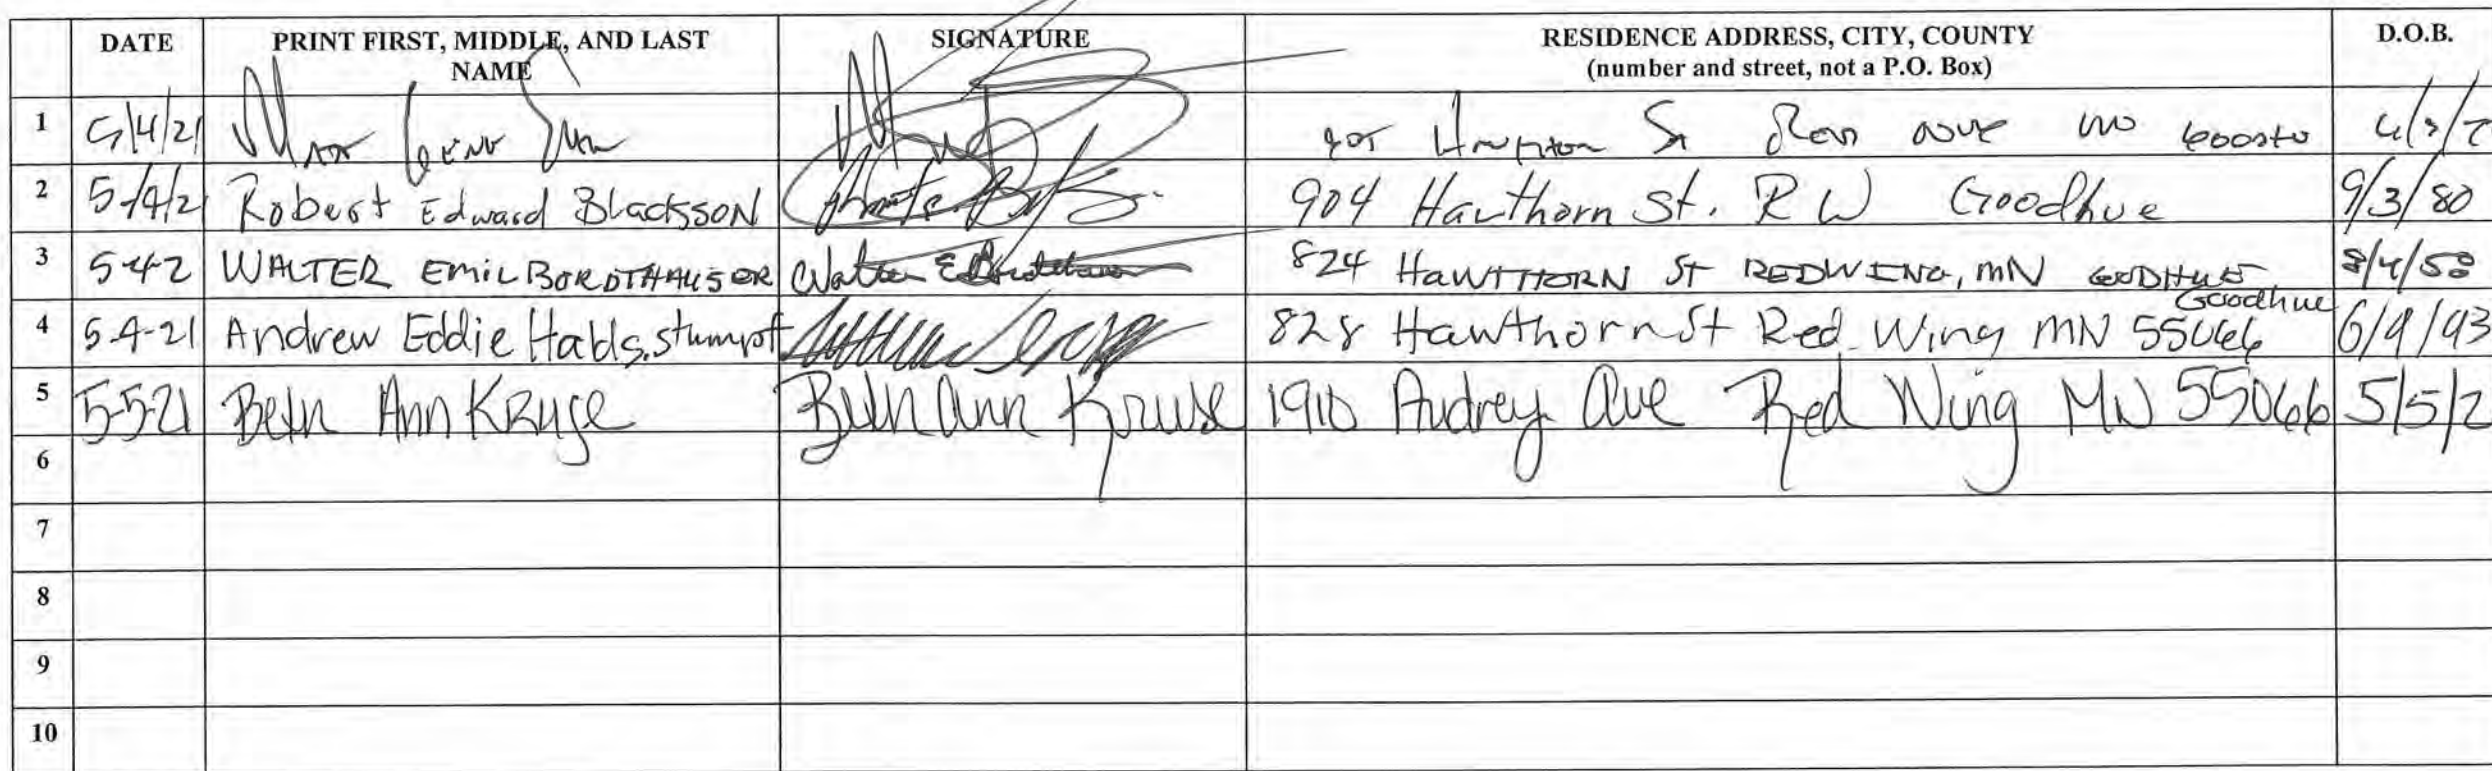 DATE PRINT FIRST, MIDDLE, AND LAST NAME SIGNATURE RESIDENCE ADDRESS, CITY, COUNTY (number and street, not a P.O. Box) D.O.B.
1 5/4/21 St
2 5/4/21 Robert Edward Blacksson 904 Hawthorn St. R W Goodhue 9/3/80
3 5-4-2 WALTER EMIL BORDTHAUSER Walter E 824 HAWTHORN ST REDWING, MN GOODHUE 8/4/58
4 5-4-21 Andrew Eddie 828 Hawthorn St Red Wing MN 55066 Goodhue 6/9/93
5 5-5-21 Beth Ann Kruse Beth Ann Kruse 1910 Audrey Ave Red Wing MN 55066 5/5/2
6
7
8
9
10